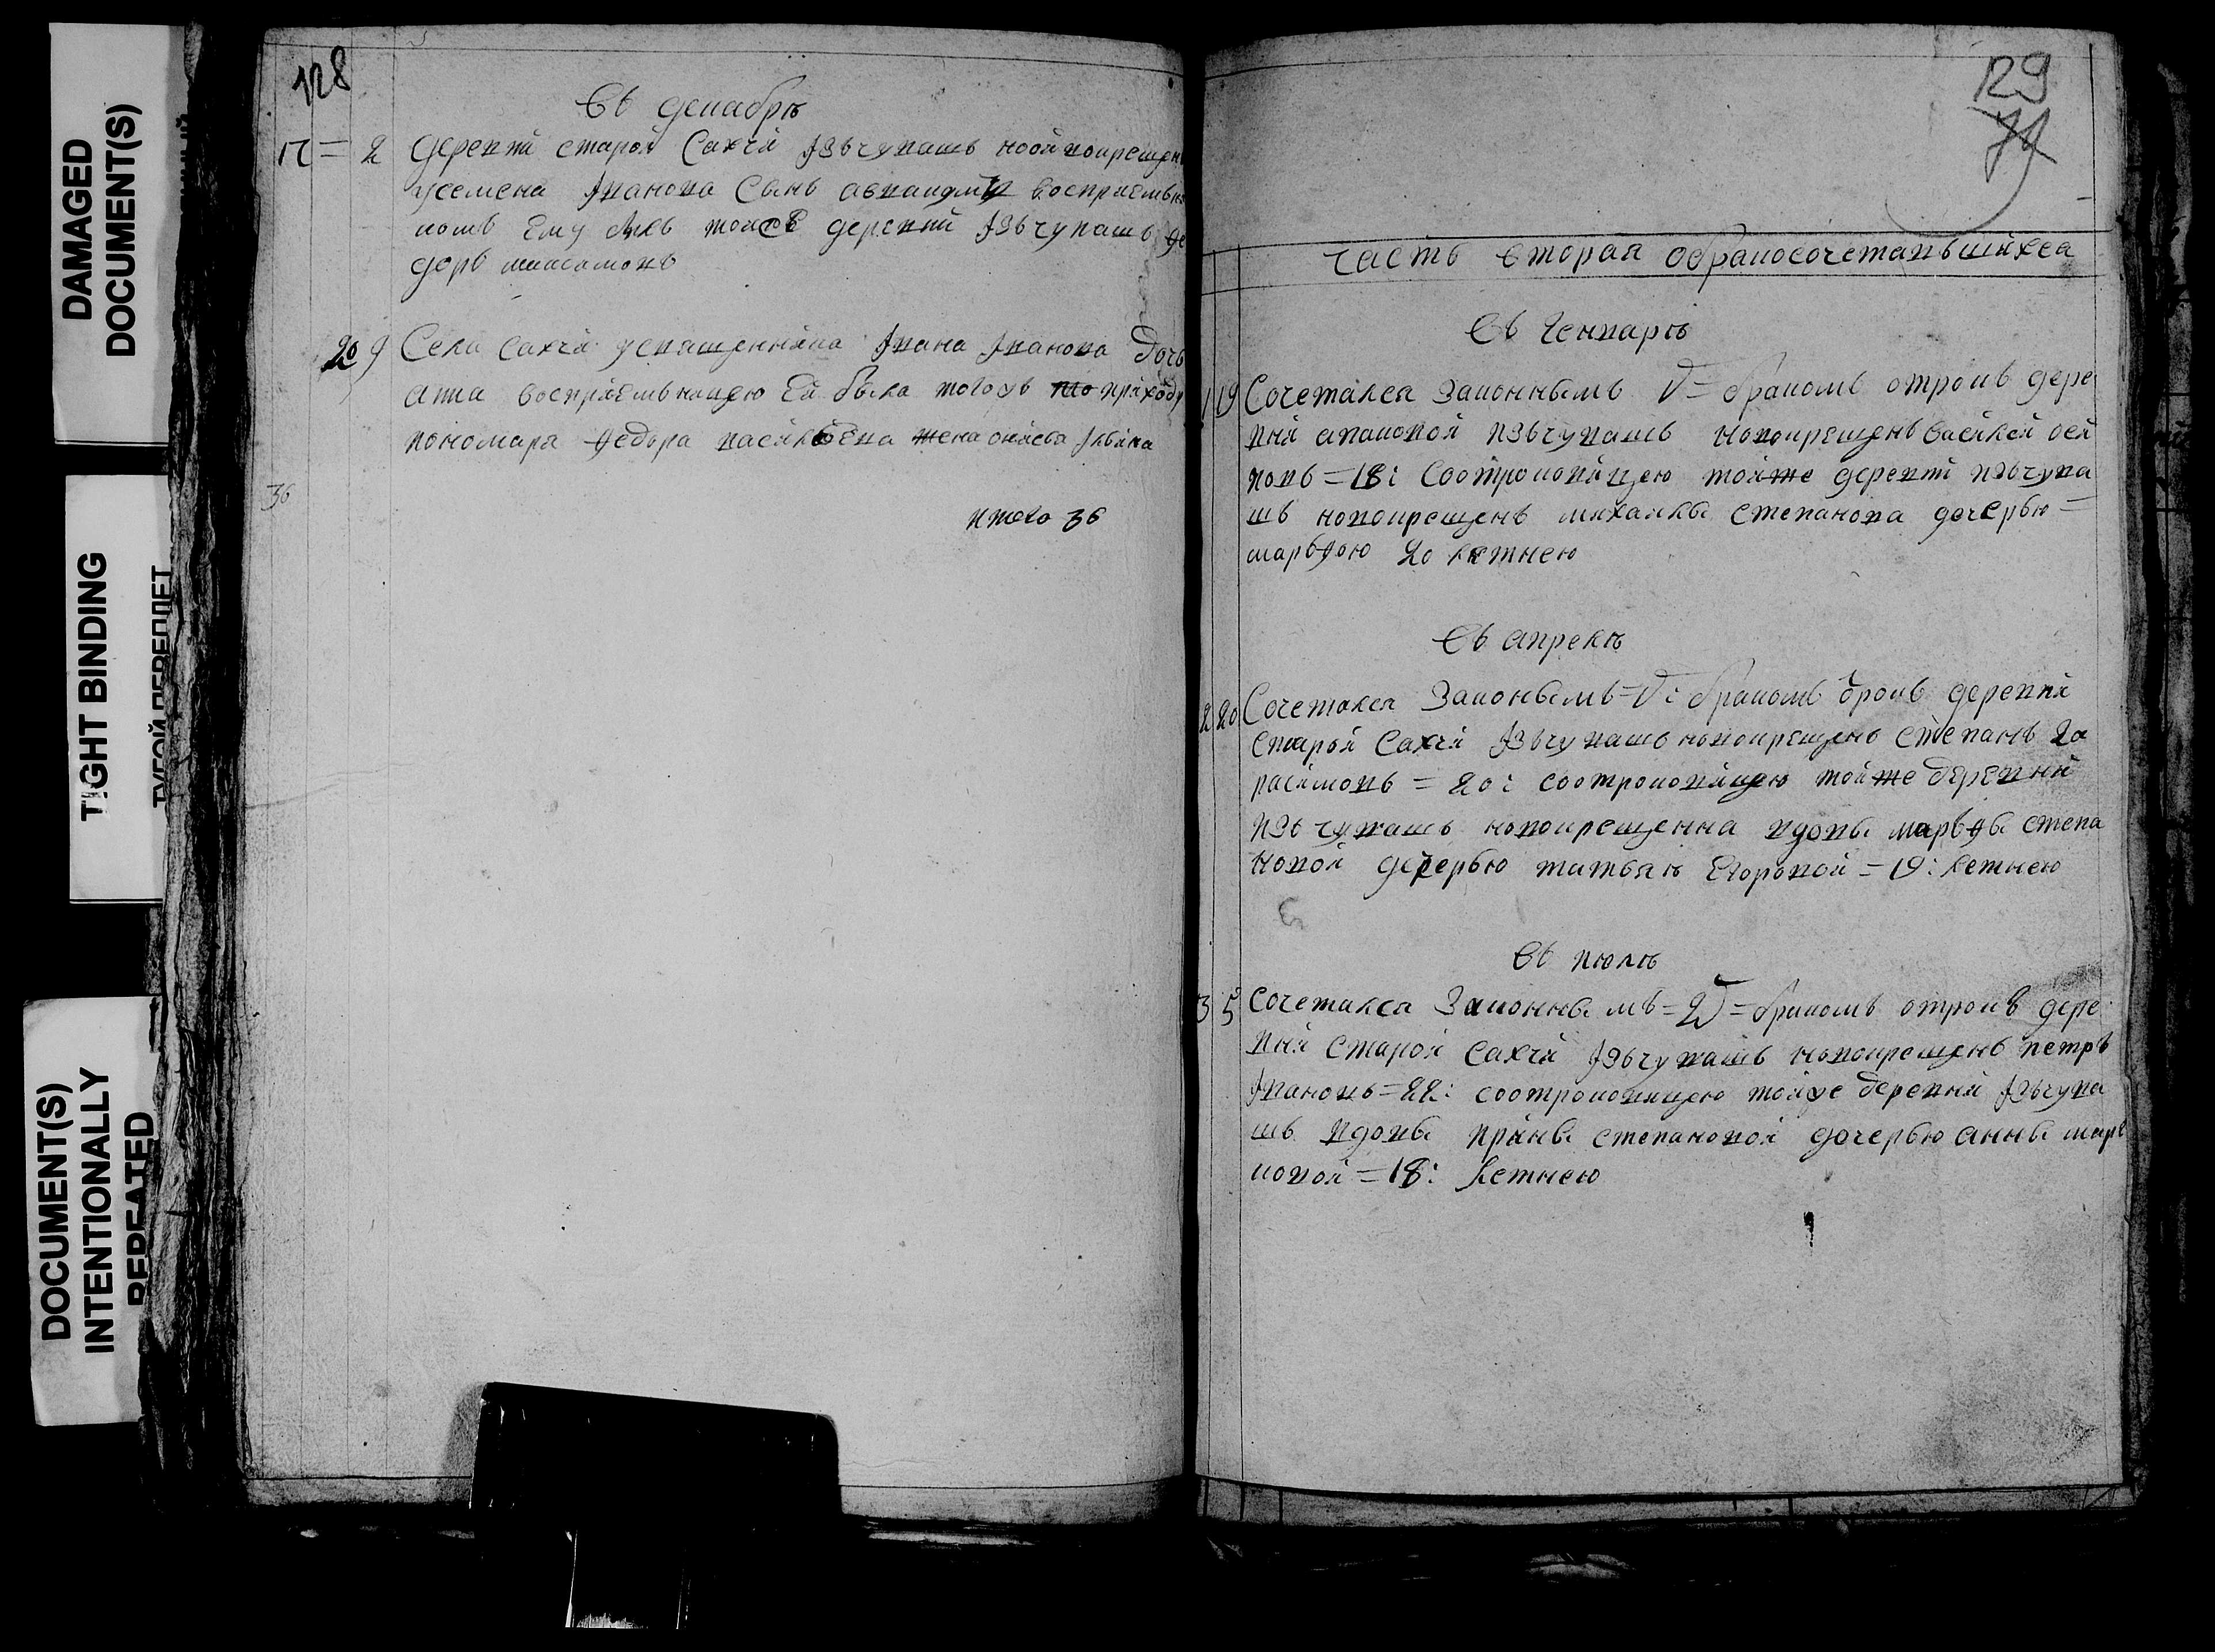 DAMAGED
DOCUMENT(S)
TIGHT BINDING
ТУГОЙ ПЕРЕПЛЕТ
DOCUMENT(S)
INTENTIONALLY
REPEATED
128
Въ декабрѣ
17 = 2 деревни старой Сахчи изъ чувашъ
у семена Иванова сынъ воспріемъни
комъ ему былъ тойже деревни изъ чувашъ фе
доръ
20 9 Села сахчи у священника Ивана Иванова дочь
анна воспріемъницею ей была тогожъ приходу
пономаря федора васильева жена
36
итого 36
129
часть вторая о бракосочетавъшихся
Въ Генваре
1 19 Сочетался законнымъ 1 = бракомъ отрокъ дере
вни изъ чувашъ новокрещенъ василей
= 18: со отроковицею тойже деревни изъ чува
шъ новокрещенъ михаилы степанова дочерью =
марьфою 20 летнею
Въ апрелѣ
2 20 Сочетался законымъ = 1: бракомъ деревни
старой Сахчи изъ чувашъ новокрещенъ степанъ Га
расимовъ = 20: со отроковицею тойже деревни
изъ чувашъ новокрещенна вдовы марьфы степа
новой дочерью татьяною Егоровой = 19: летнею
Въ июлѣ
3 5 Сочетался законнымъ = бракомъ отрокъ дере
вни старой Сахчи изъ чувашъ новокрещенъ петръ
Ивановъ = 22: со отроковицею тойже деревни изъ чува
шъ вдовы ирины степановой дочерью анны марь
ковой = 18: летнею